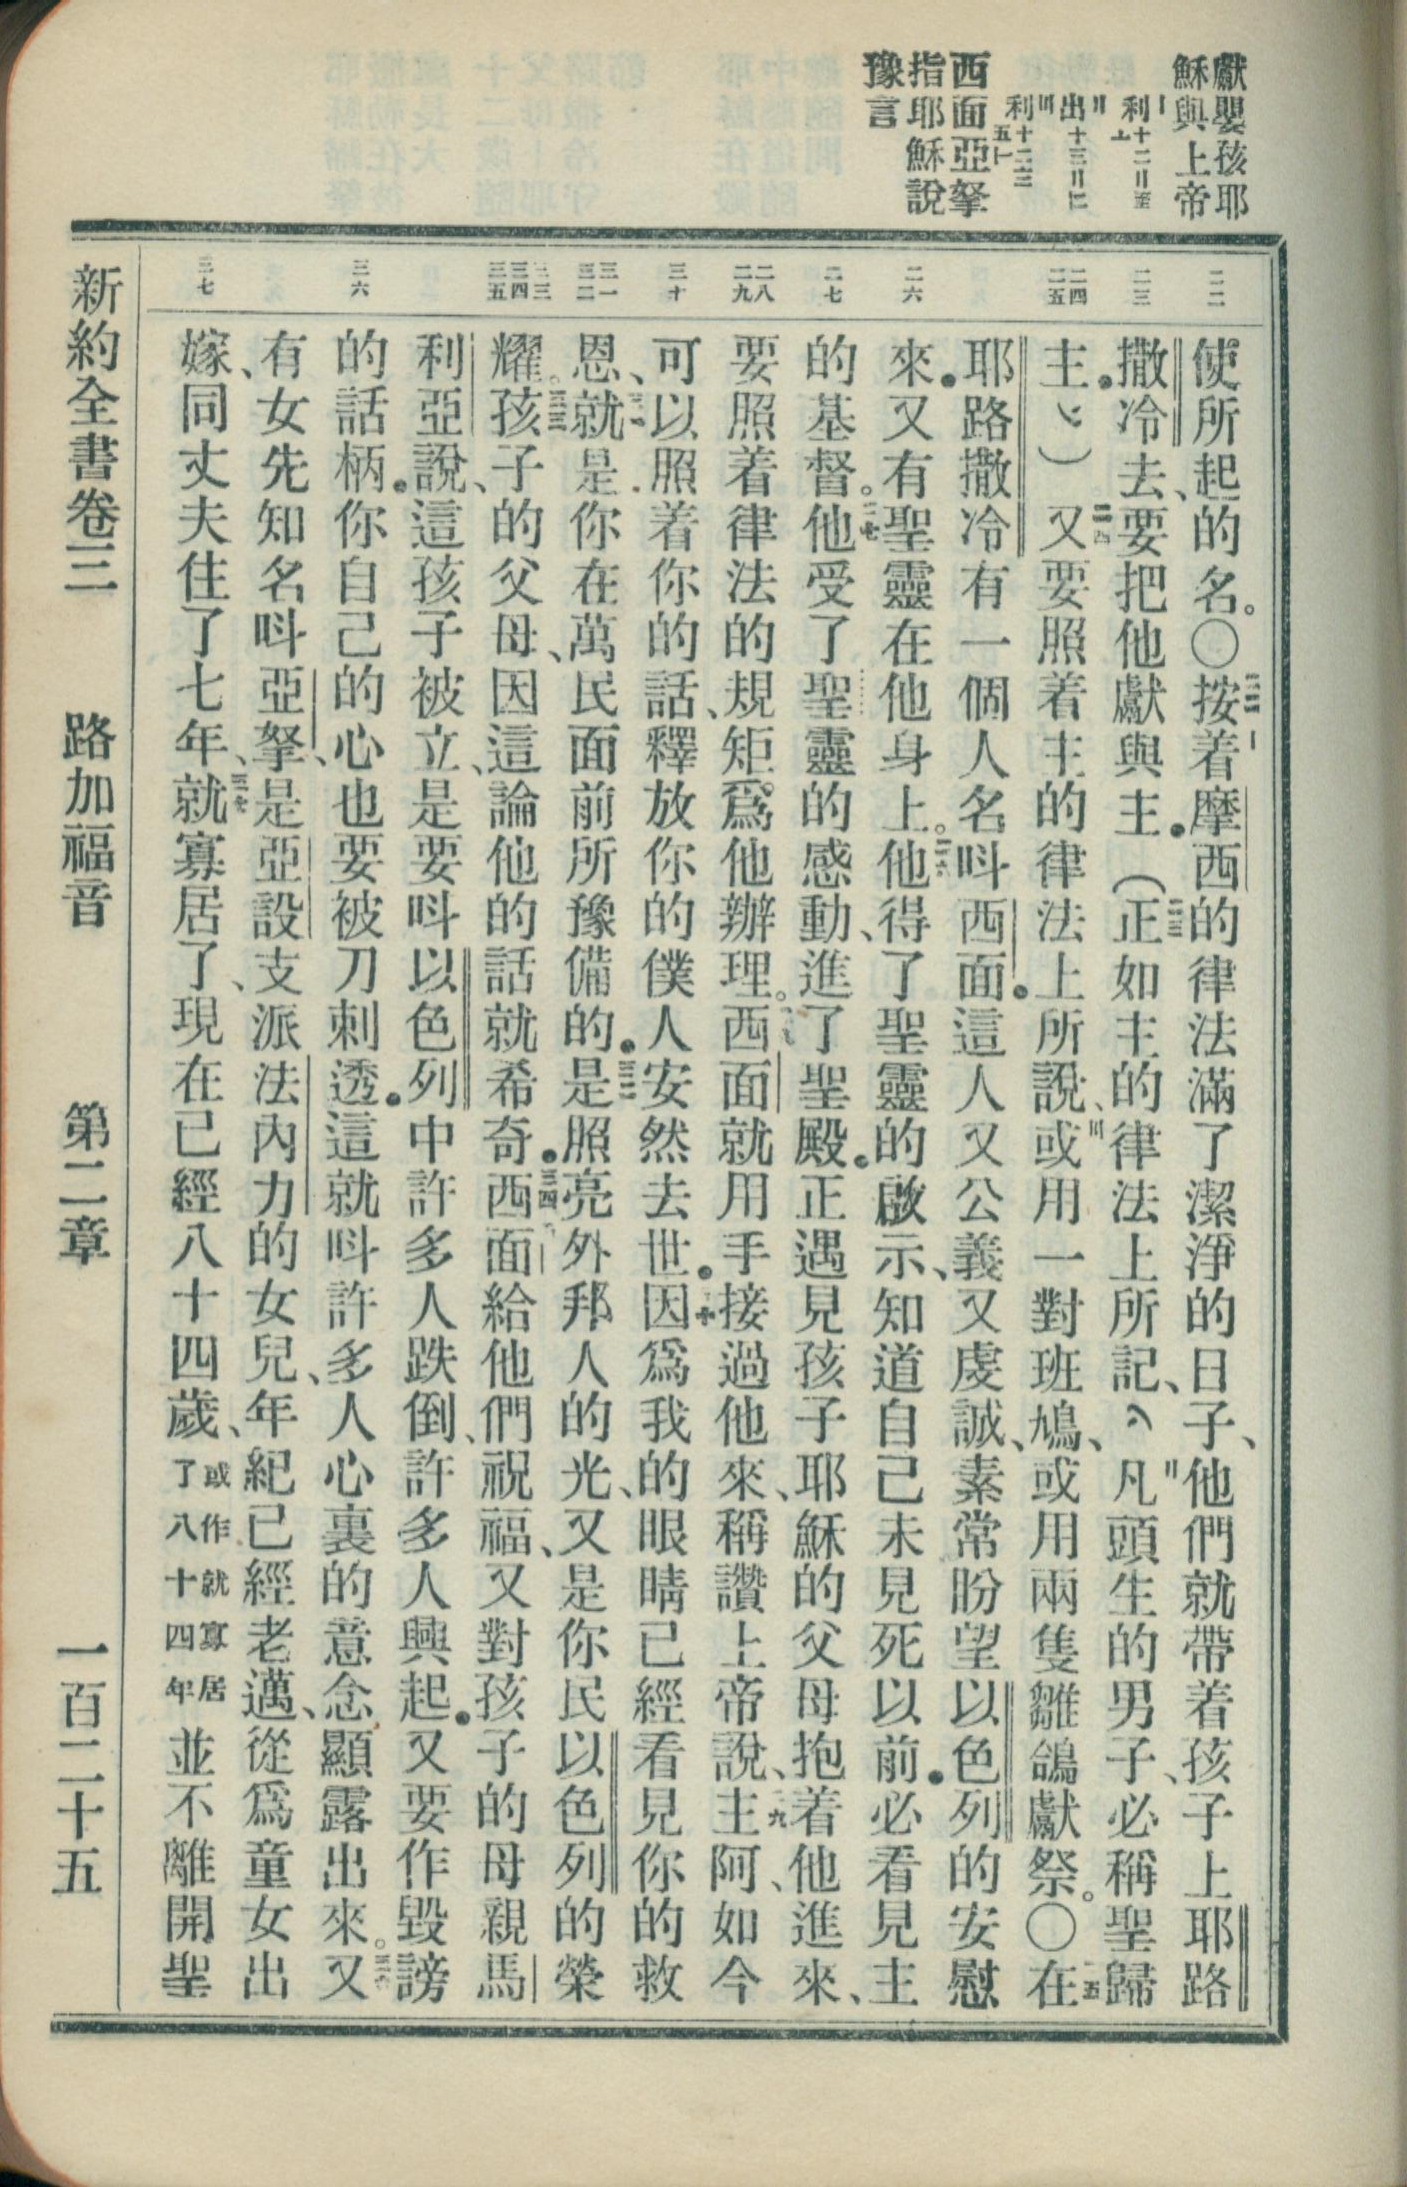 獻嬰孩耶
穌與上帝
一利十二〇二至
二出十三〇二
三利十二〇三
西面亞拏
指耶穌說
豫言
二二
二三
二四
二五
二六
二七
二八
二九
三十
三一
三二
三三
三四
三五
三六
三七
使所起的名。〇按着摩西的律法滿了潔淨的日子、他們就帶着孩子上耶路
撒冷去、要把他獻與主．（正如主的律法上所記、凡頭生的男子、必稱聖歸
主．）又要照着主的律法上所說、或用一對班鳩、或用兩隻雛鴿獻祭。〇在
耶路撒冷有一個人名呌西面．這人又公義又虔誠、素常盼望以色列的安慰
來．又有聖靈在他身上。他得了聖靈的啟示、知道自己未見死以前．必看見主
的基督。他受了聖靈的感動、進了聖殿．正遇見孩子耶穌的父母抱着他進來、
要照着律法的規矩爲他辦理。西面就用手接過他來、稱讚上帝說、主阿、如今
可以照着你的話、釋放你的僕人安然去世．因爲我的眼睛已經看見你的救
恩、就是你在萬民面前所豫備的．是照亮外邦人的光、又是你民以色列的榮
耀。孩子的父母、因這論他的話就希奇．西面給他們祝福、又對孩子的母親馬
利亞說、這孩子被立、是要呌以色列中許多人跌倒、許多人興起．又要作毀謗
的話柄．你自己的心、也要被刀刺透．這就呌許多人心裏的意念顯露出來。又
有女先知名呌亞拏、是亞設支派法內力的女兒、年紀已經老邁、從爲童女出
嫁、同丈夫住了七年、就寡居了、現在已經八十四歲、或作就寡居了八十四年並不離開聖
新約全書卷三　路加福音　第二章　一百二十五